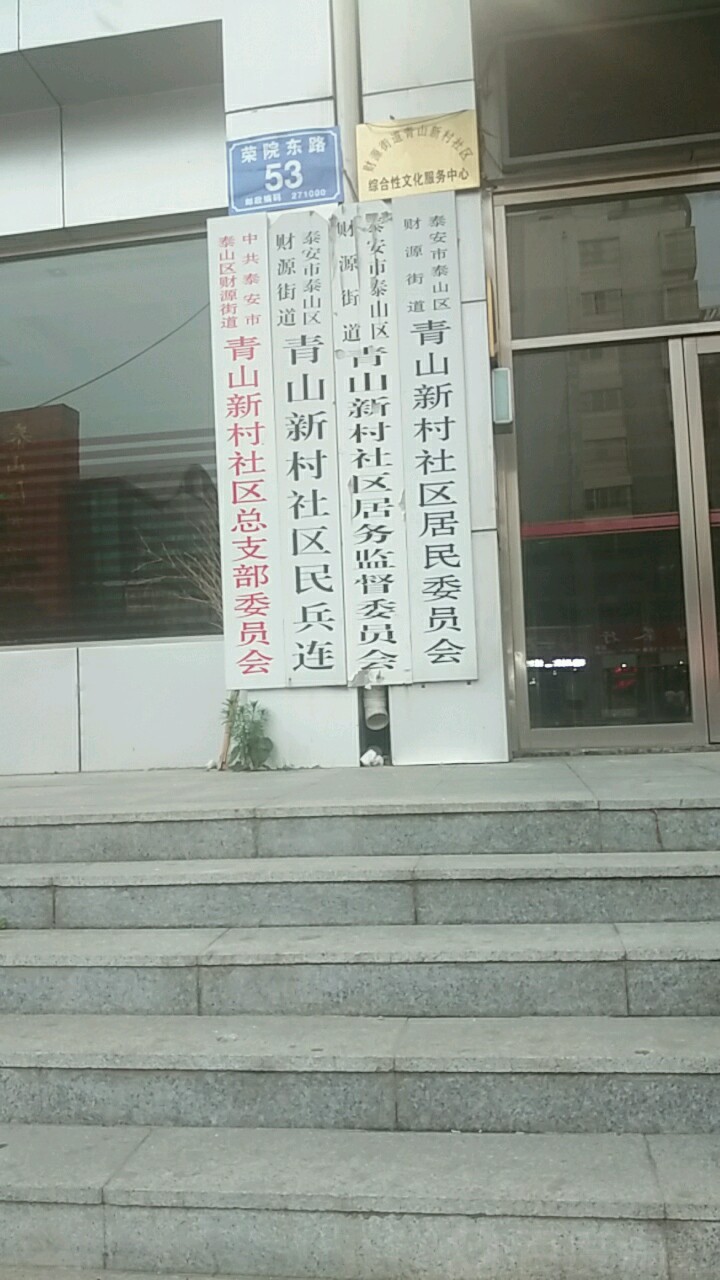 荣院东路
53
邮政编码 271000
财源街道青山新村社区
综合性文化服务中心
中共泰安市
泰山区财源街道
青山新村社区总支部委员会
泰安市泰山区
财源街道
青山新村社区民兵连
泰安市泰山区
财源街道
青山新村社区居务监督委员会
泰安市泰山区
财源街道
青山新村社区居民委员会
泰山